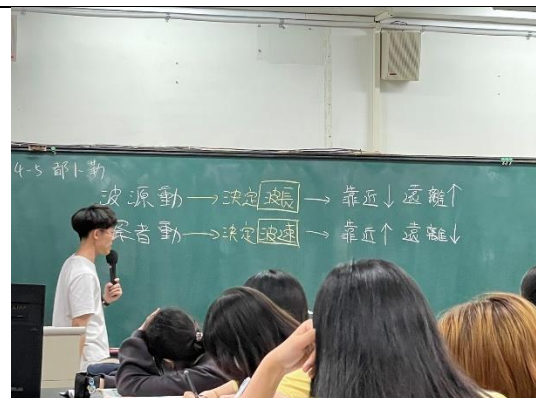 4-5 都卜勒
波源動→決定波長→靠近↓遠離↑
察者動→決定波速→靠近↑遠離↓